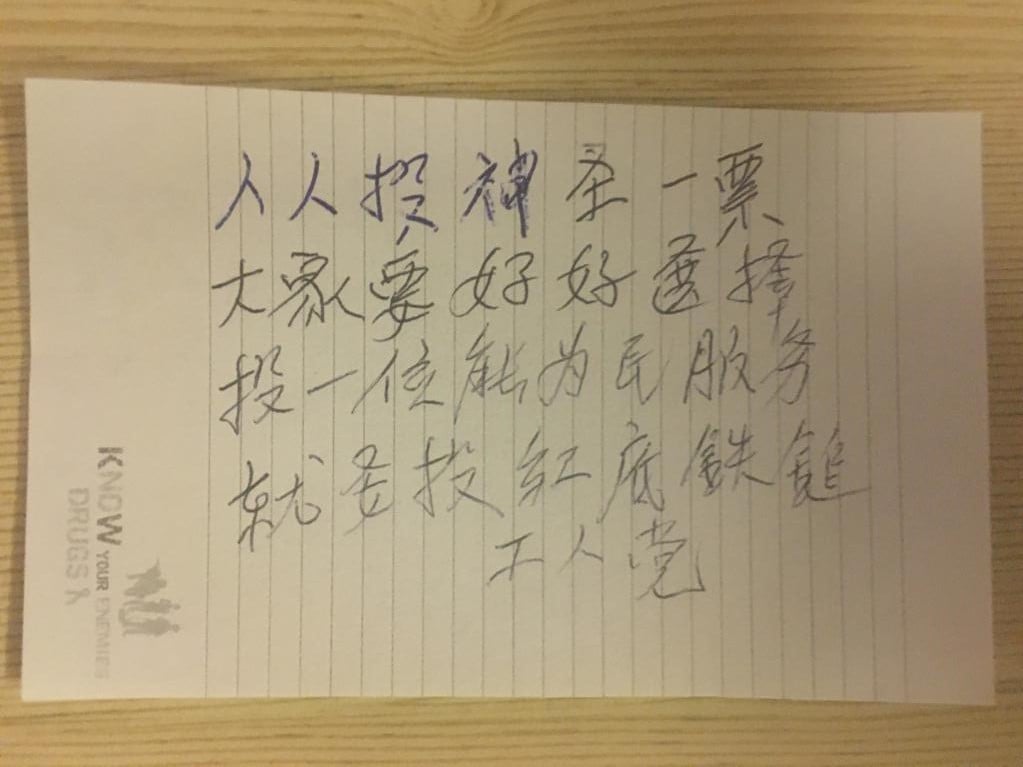 人人投神圣一票
大家要好好选择
投一位能为民服务
就要投紅底鉄鎚
工人党
KNOW YOUR ENEMIES
DRUGS &